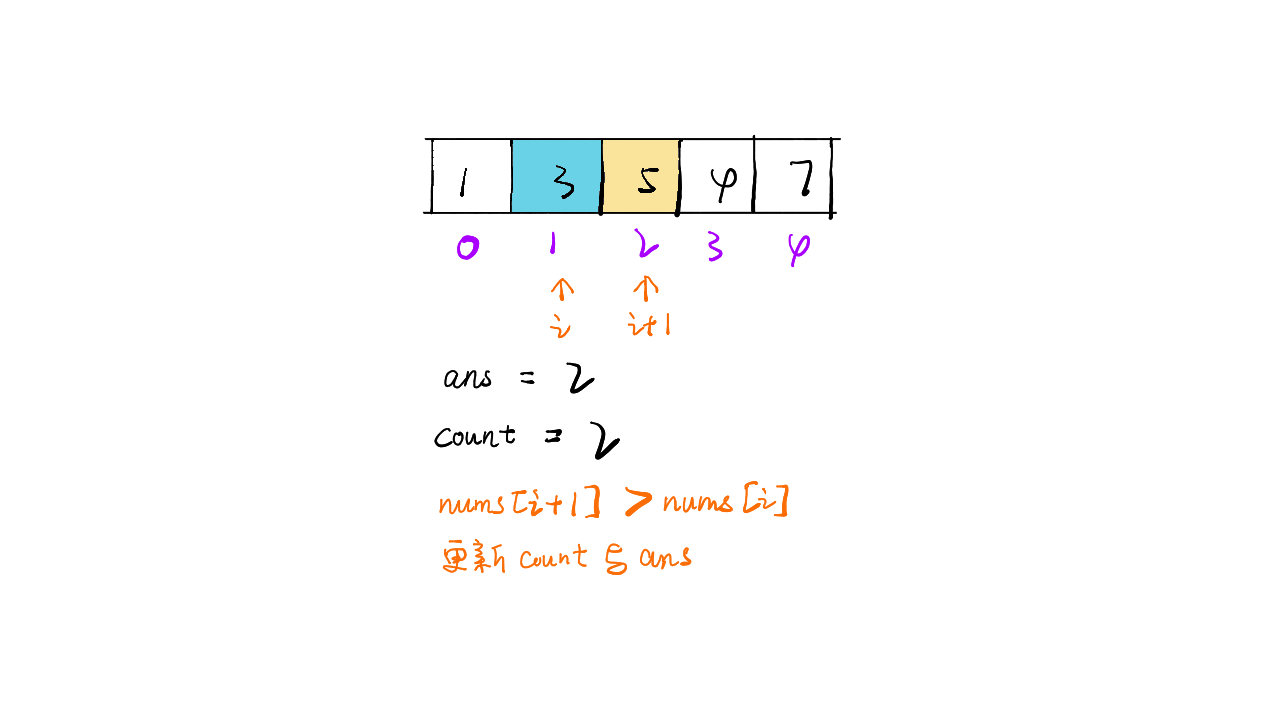 1 3 5 4 7
0 1 2 3 4
↑ ↑
i i+1
ans = 2
count = 2
nums[i+1] > nums[i]
更新 count 与 ans